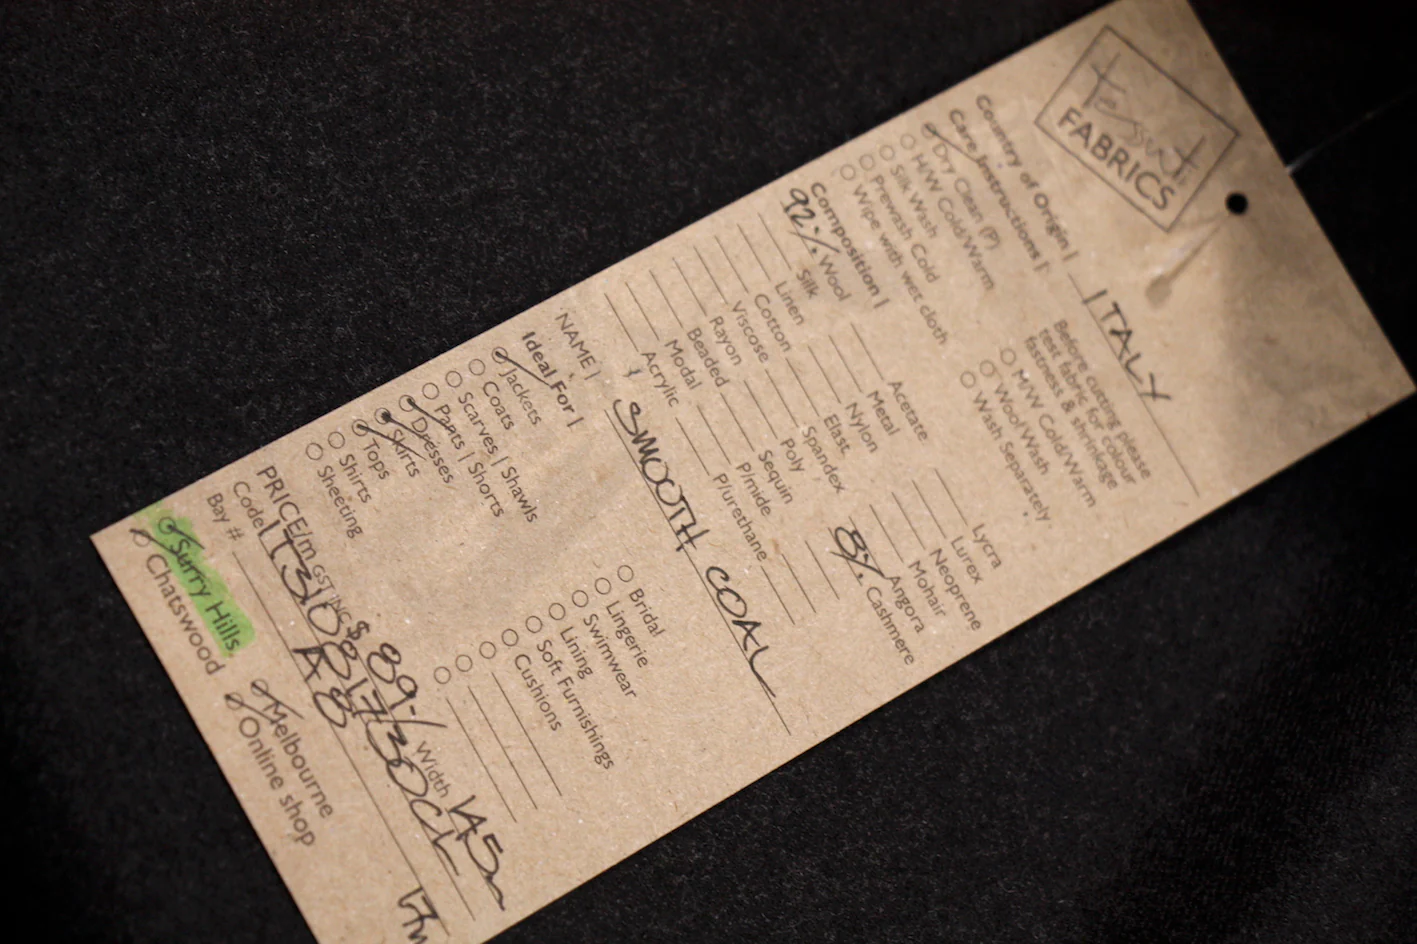 Tessuti
FABRICS
Country of Origin | ITALY
Care Instructions |
Dry Clean (P)
H/W Cold/Warm
Silk Wash
Prewash Cold
Wipe with wet cloth
Before cutting please
test fabric for colour
fastness & shrinkage
M/W Cold/Warm
Wool Wash
Wash Separately
Composition |
92% Wool
Silk
Linen
Cotton
Viscose
Rayon
Beaded
Modal
Acrylic
Acetate
Metal
Nylon
Elast
Spandex
Poly
Sequin
P/mide
P/urethane
Lycra
Lurex
Neoprene
Mohair
Angora
8% Cashmere
NAME | SMOOTH COAL
Ideal For |
Jackets
Coats
Scarves | Shawls
Pants | Shorts
Dresses
Skirts
Tops
Shirts
Sheeting
Bridal
Lingerie
Swimwear
Lining
Soft Furnishings
Cushions
PRICE/m GST INC $ 89-/ Width 145
Code |
Bay # R8
Surry Hills
Chatswood
Melbourne
Online shop